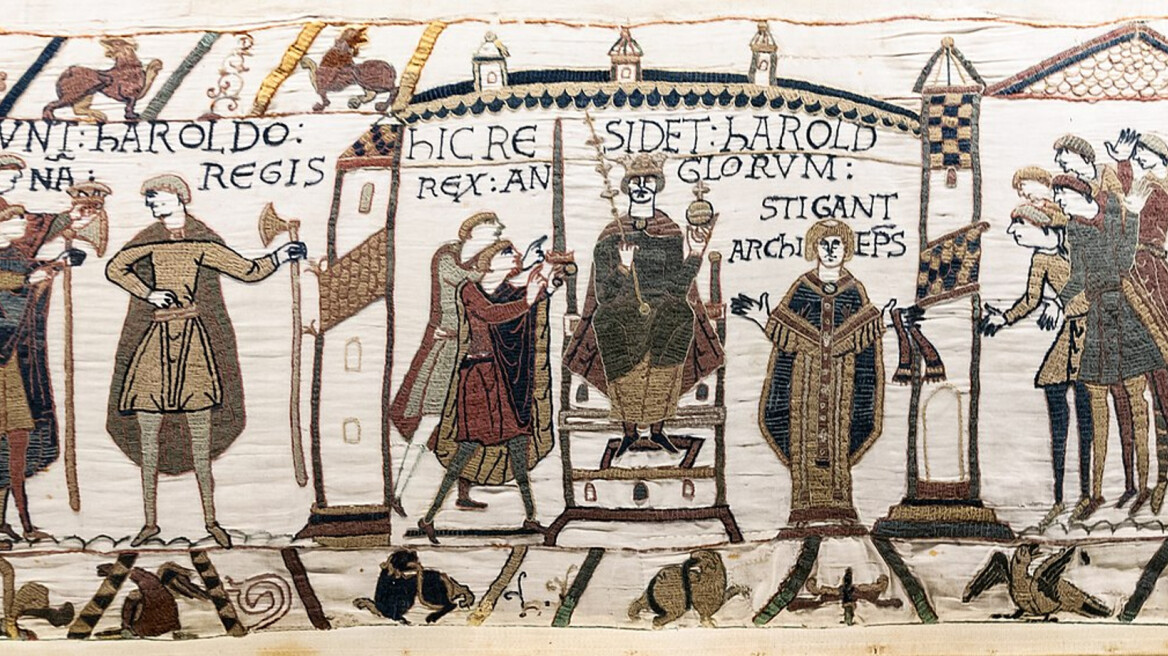 VNT: hAROLDO:
NĀ: REGIS
hIC RE SIDET: hAROLD
REX: AN GLORVM:
STIGANT
ARChI EPS̄